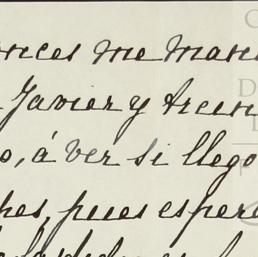 onces me man
Javier y trein
o, á ver si llego
hes, pues esper